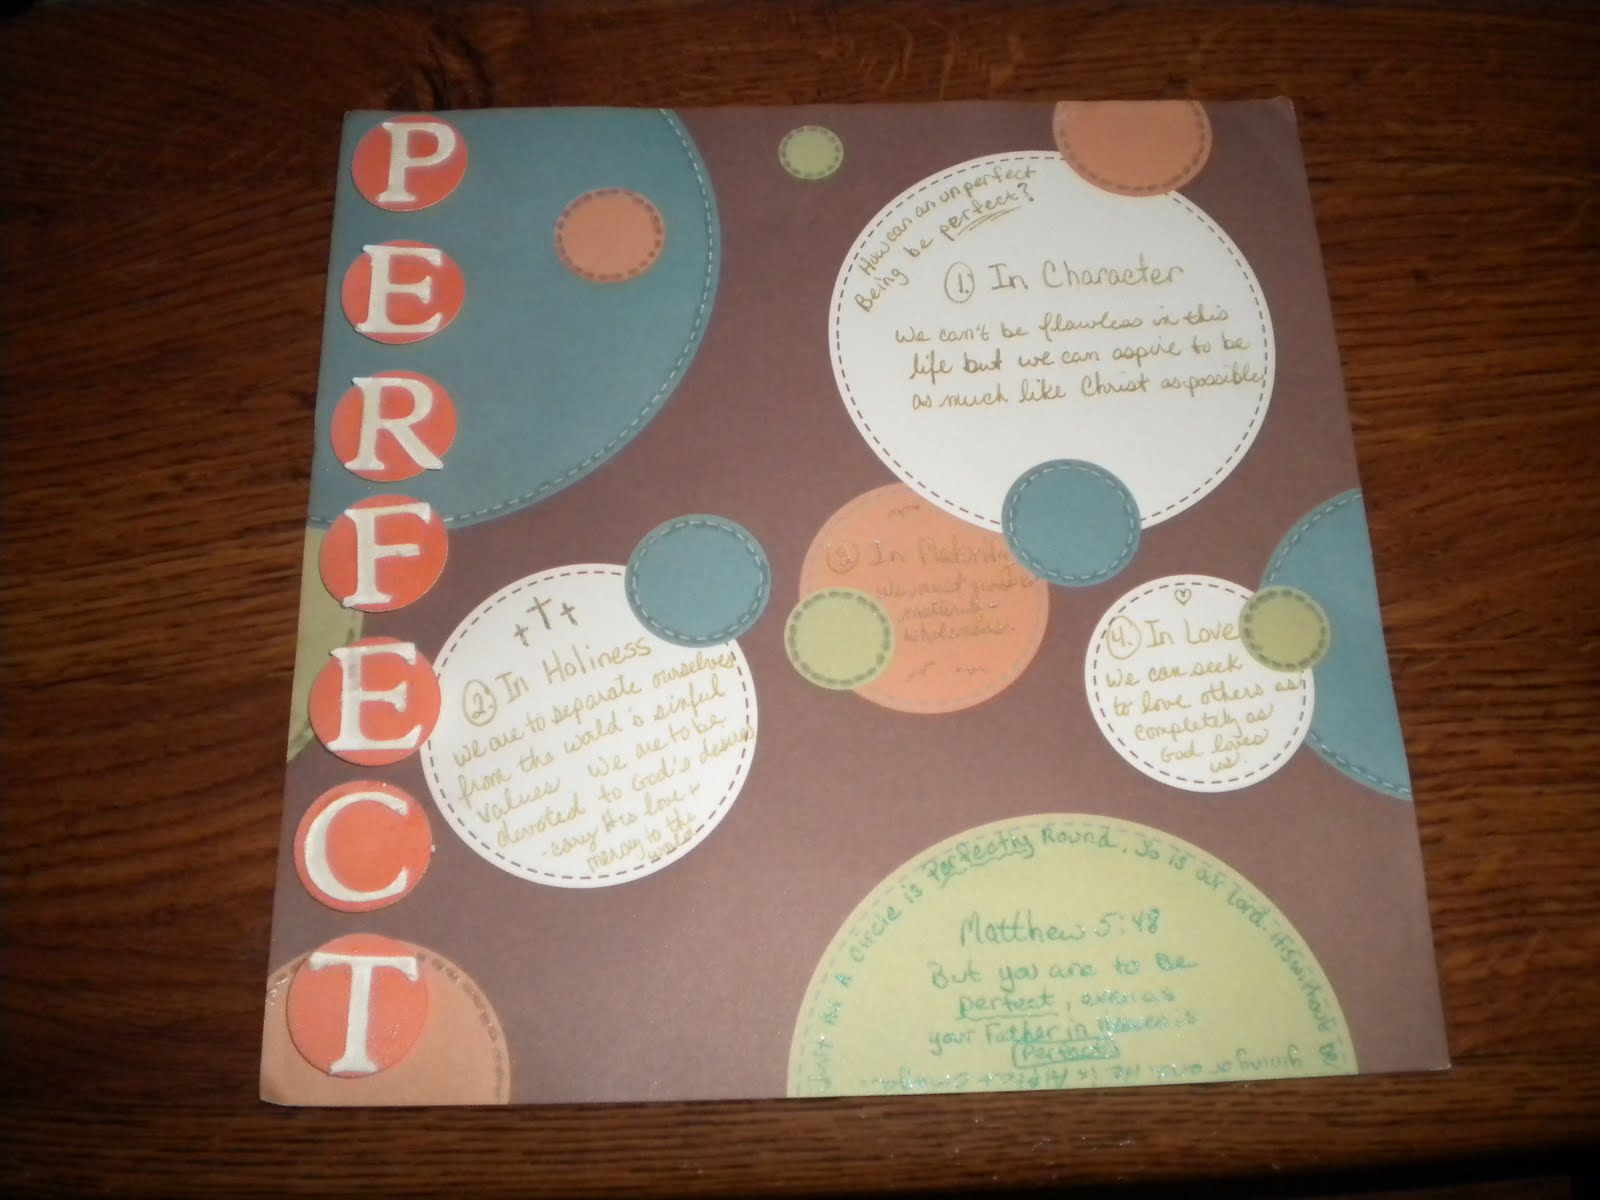 PERFECT
How can an unperfect
Being be perfect?
1. In Character
We can't be flawless in this
life but we can aspire to be
as much like Christ as possible,
2. In Holiness
we are to separate ourselves
from the world's sinful
values We are to be
devoted to God's desires
- carry His love +
mercy to the
world
3 In Maturity
we
wholeness.
4. In Love
We can seek
to love others as
completely as
God loves
us.
Just as A circle is Perfectly Round. So is our Lord. it's without be
gining or end. He is Alpha + Omega...
Matthew 5:48
But you are to Be
perfect, even as
your Father in Heaven is
Perfect